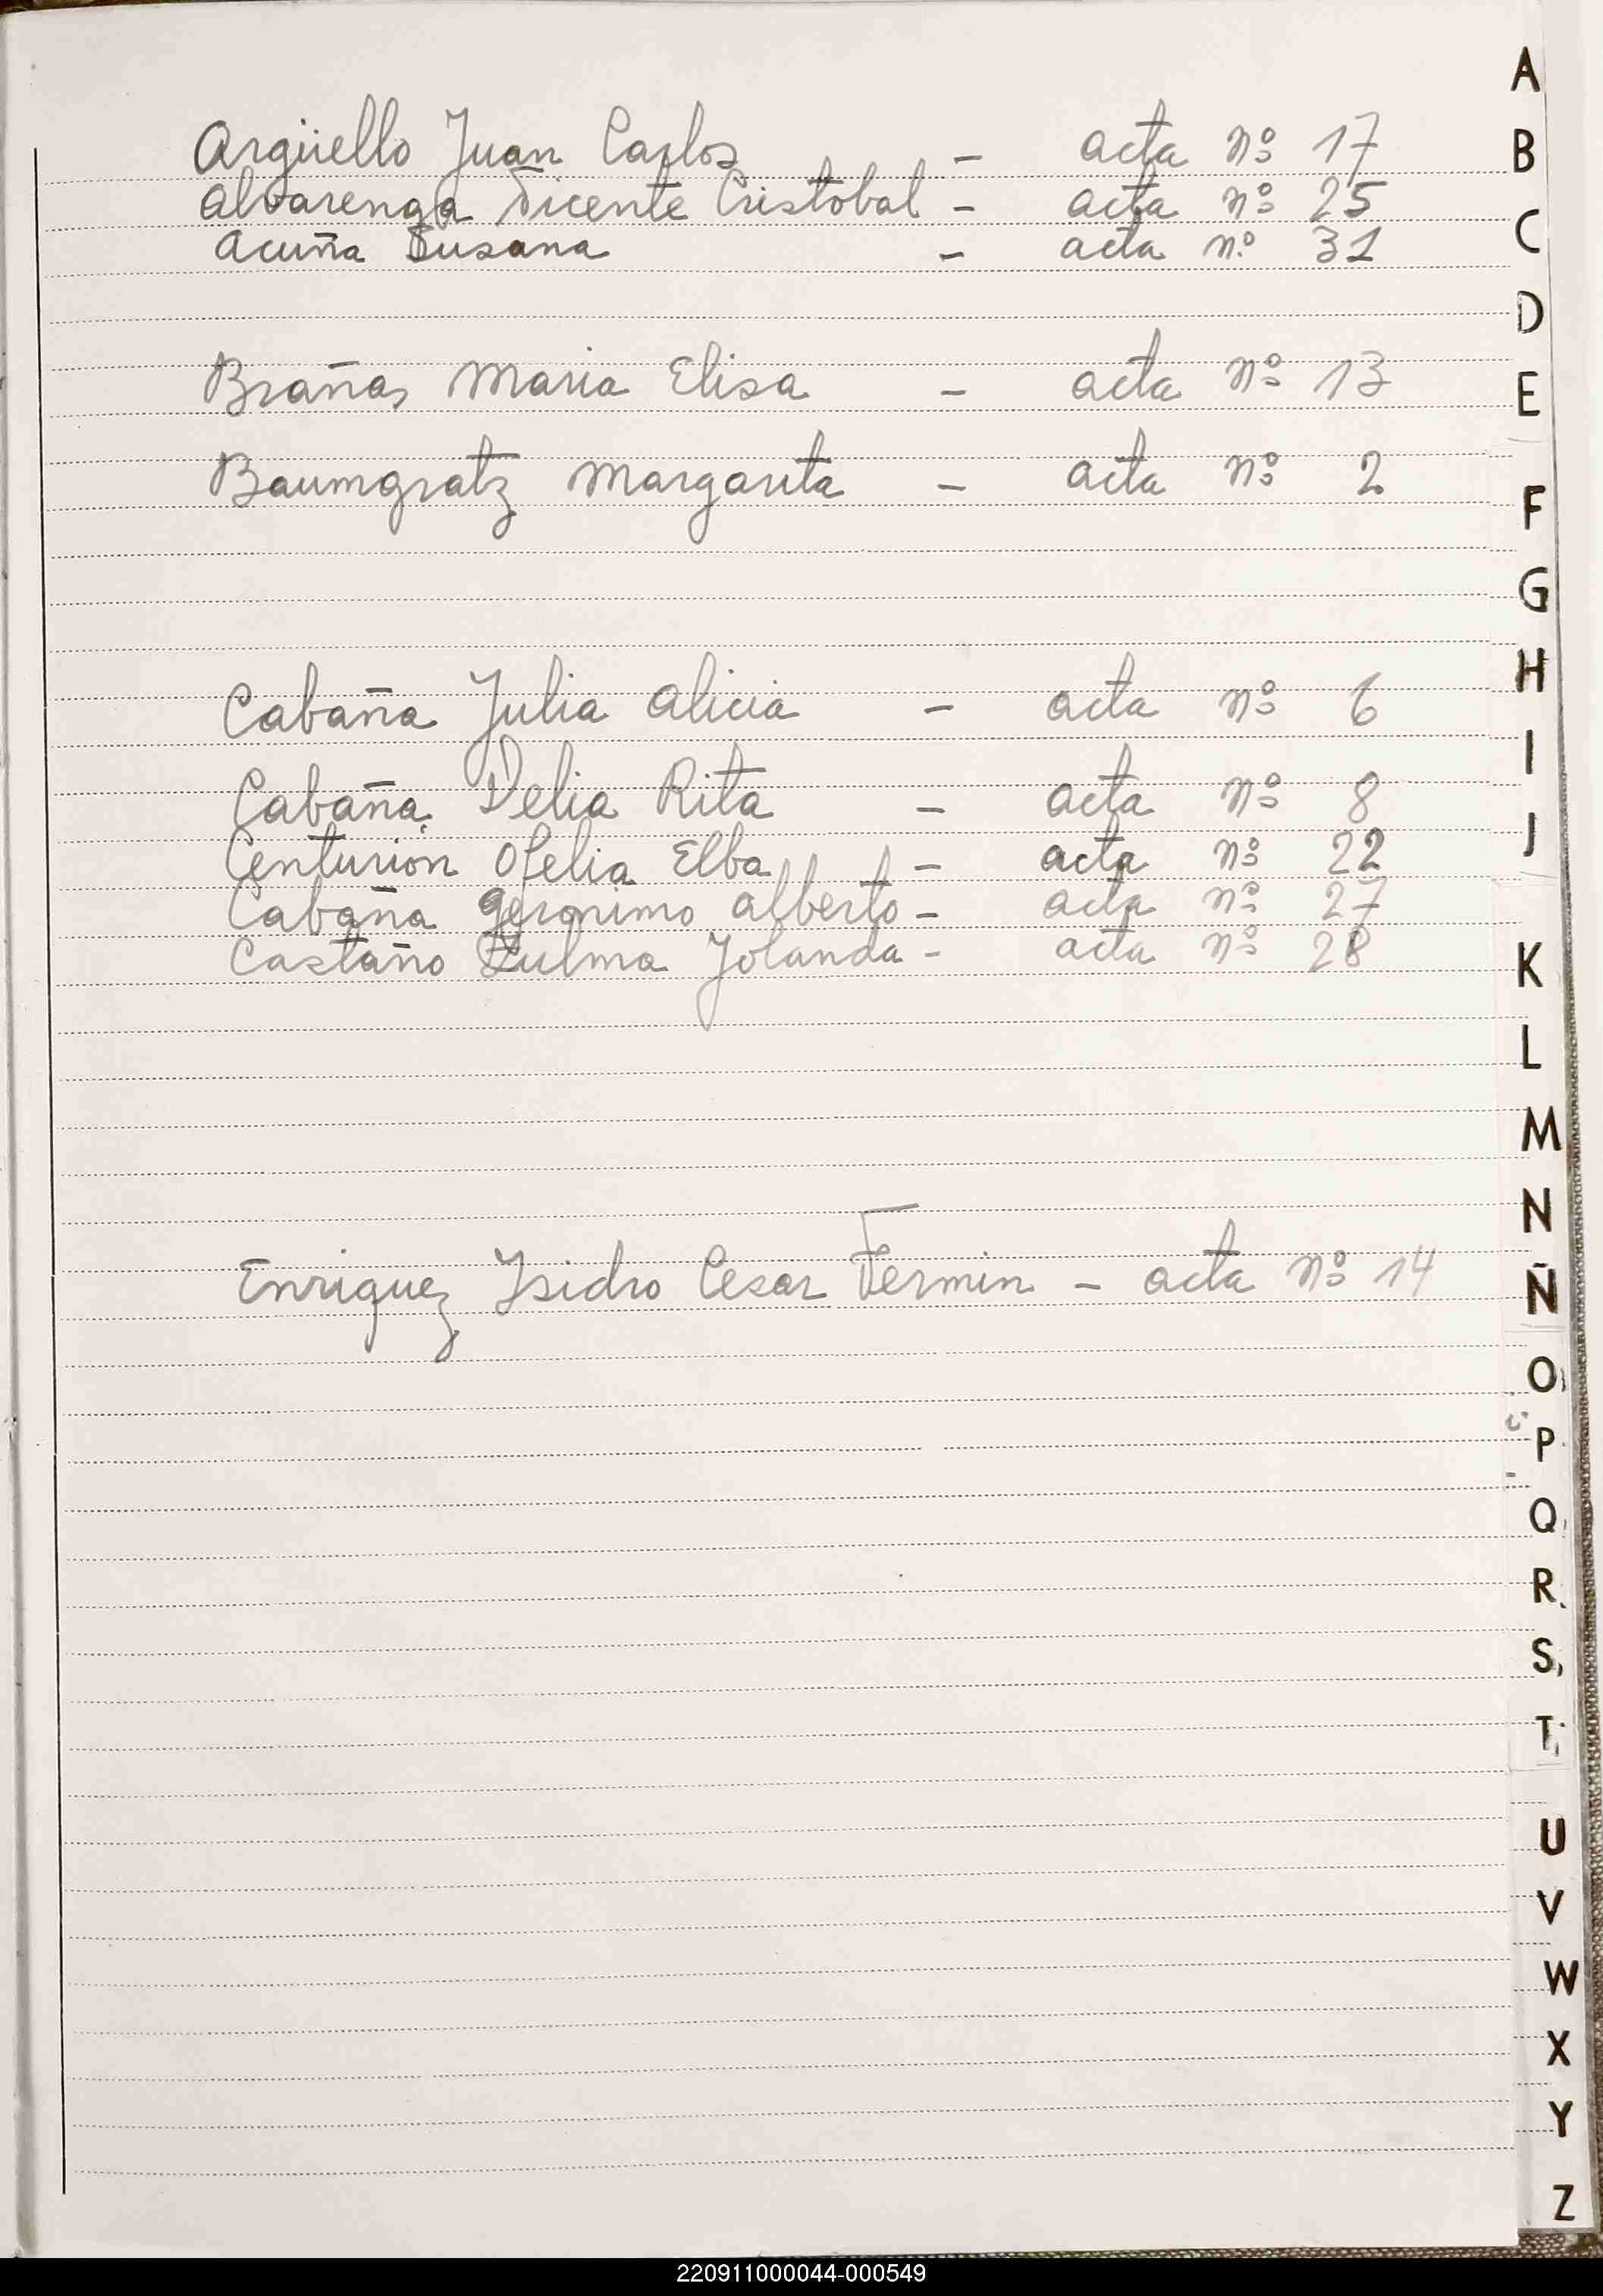 Argüello Juan Carlos - acta nº 17
Alvarenga Vicente Cristobal - acta nº 25
Acuña Susana - acta nº 31
Brañas Maria Elisa - acta nº 13
Baumgratz Margarita - acta nº 2
Cabaña Julia Alicia - acta nº 6
Cabaña Delia Rita - acta nº 8
Centurión Ofelia Elba - acta nº 22
Cabaña Geronimo Alberto - acta nº 27
Castaño Zulma Yolanda - acta nº 28
Enriquez Isidro Cesar Fermin - acta nº 14
A
B
C
D
E
F
G
H
I
J
K
L
M
N
Ñ
O
P
Q
R
S
T
U
V
W
X
Y
Z
220911000044-000549